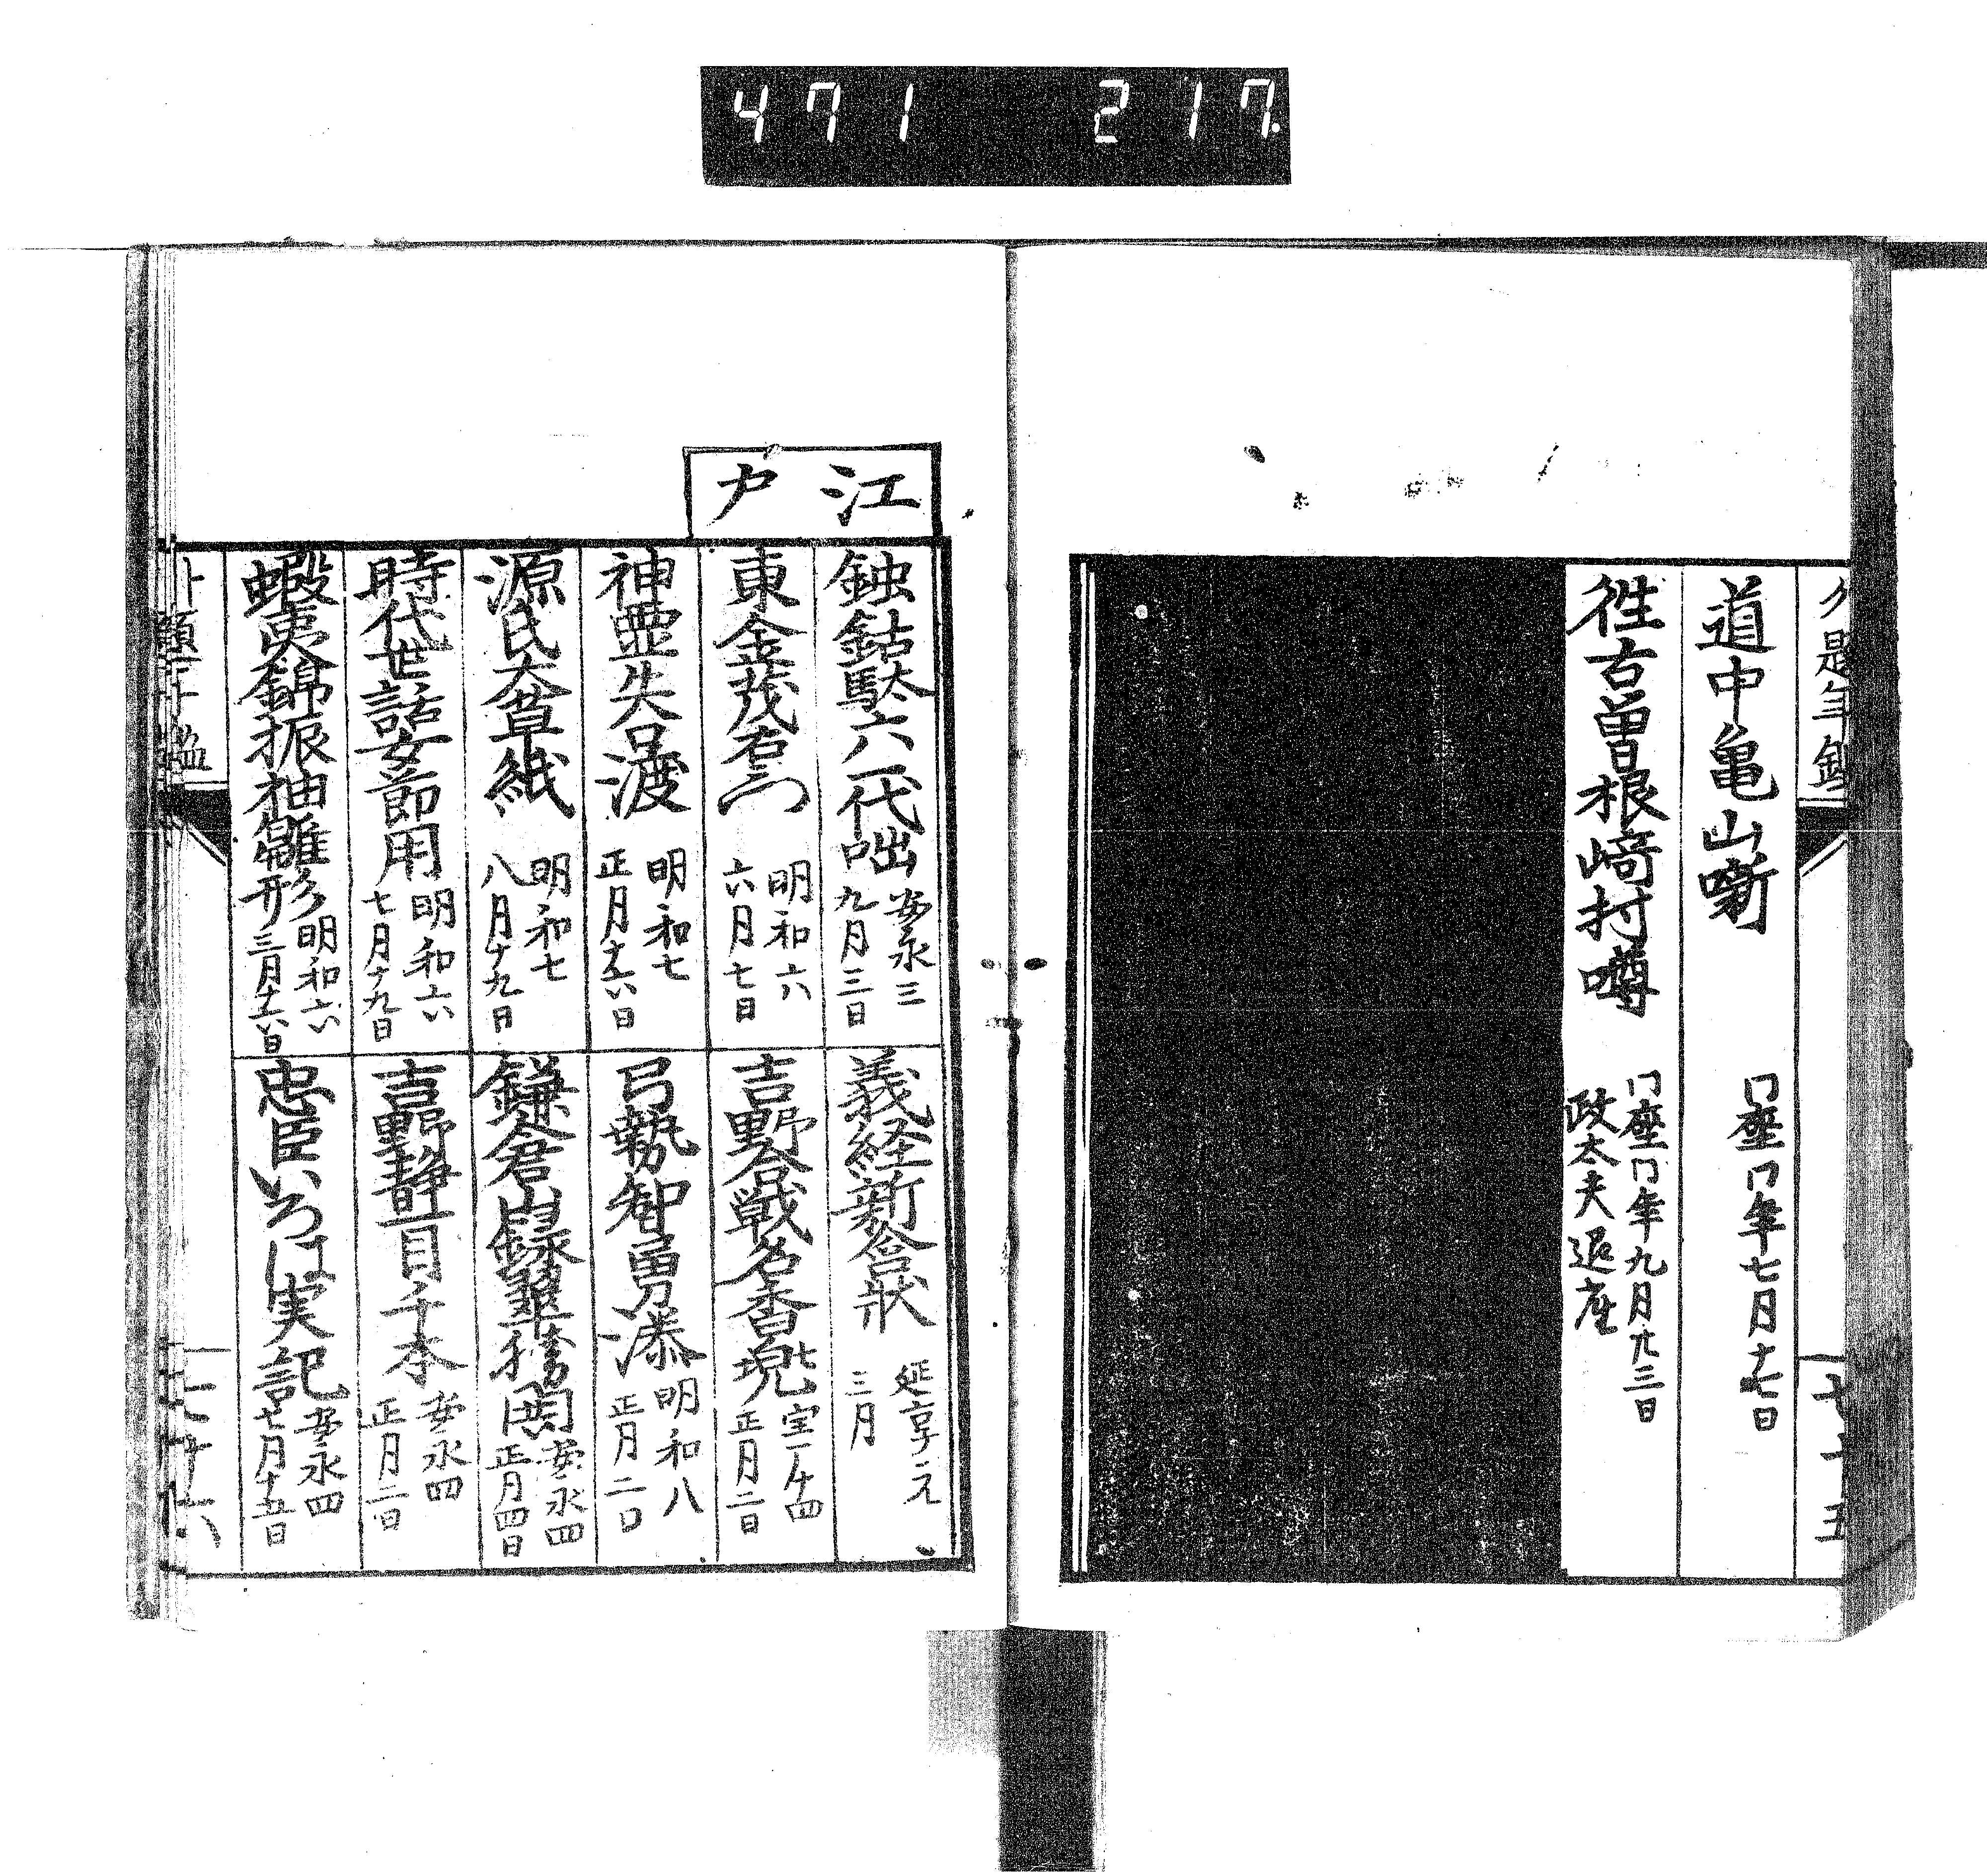 471 217
道中亀山噺 冂座冂年七月十七日
徃古曽根﨑村噂 冂座冂年九月廿三日
政太夫退座
七十五
江戸
鈍鈷駄六一代咄 安永三
九月三日
東金茂右衛門 明和六
六月七日
神霊矢口渡 明和七
正月十六日
源氏大草紙 明和七
八月十九日
時代世話女節用 明和六
七月十九日
蝦夷錦振袖雛形 明和六
三月十六日
義経新含状 延享元
三月
吉野合戦名香兜 宝一十四
正月二日
弓勢智勇湊 明和八
正月二日
鎌倉山緑翠勢 安永四
正月四日
吉野静一目千本 安永四
正月二日
忠臣いろは実記 安永四
七月十五日
七十六